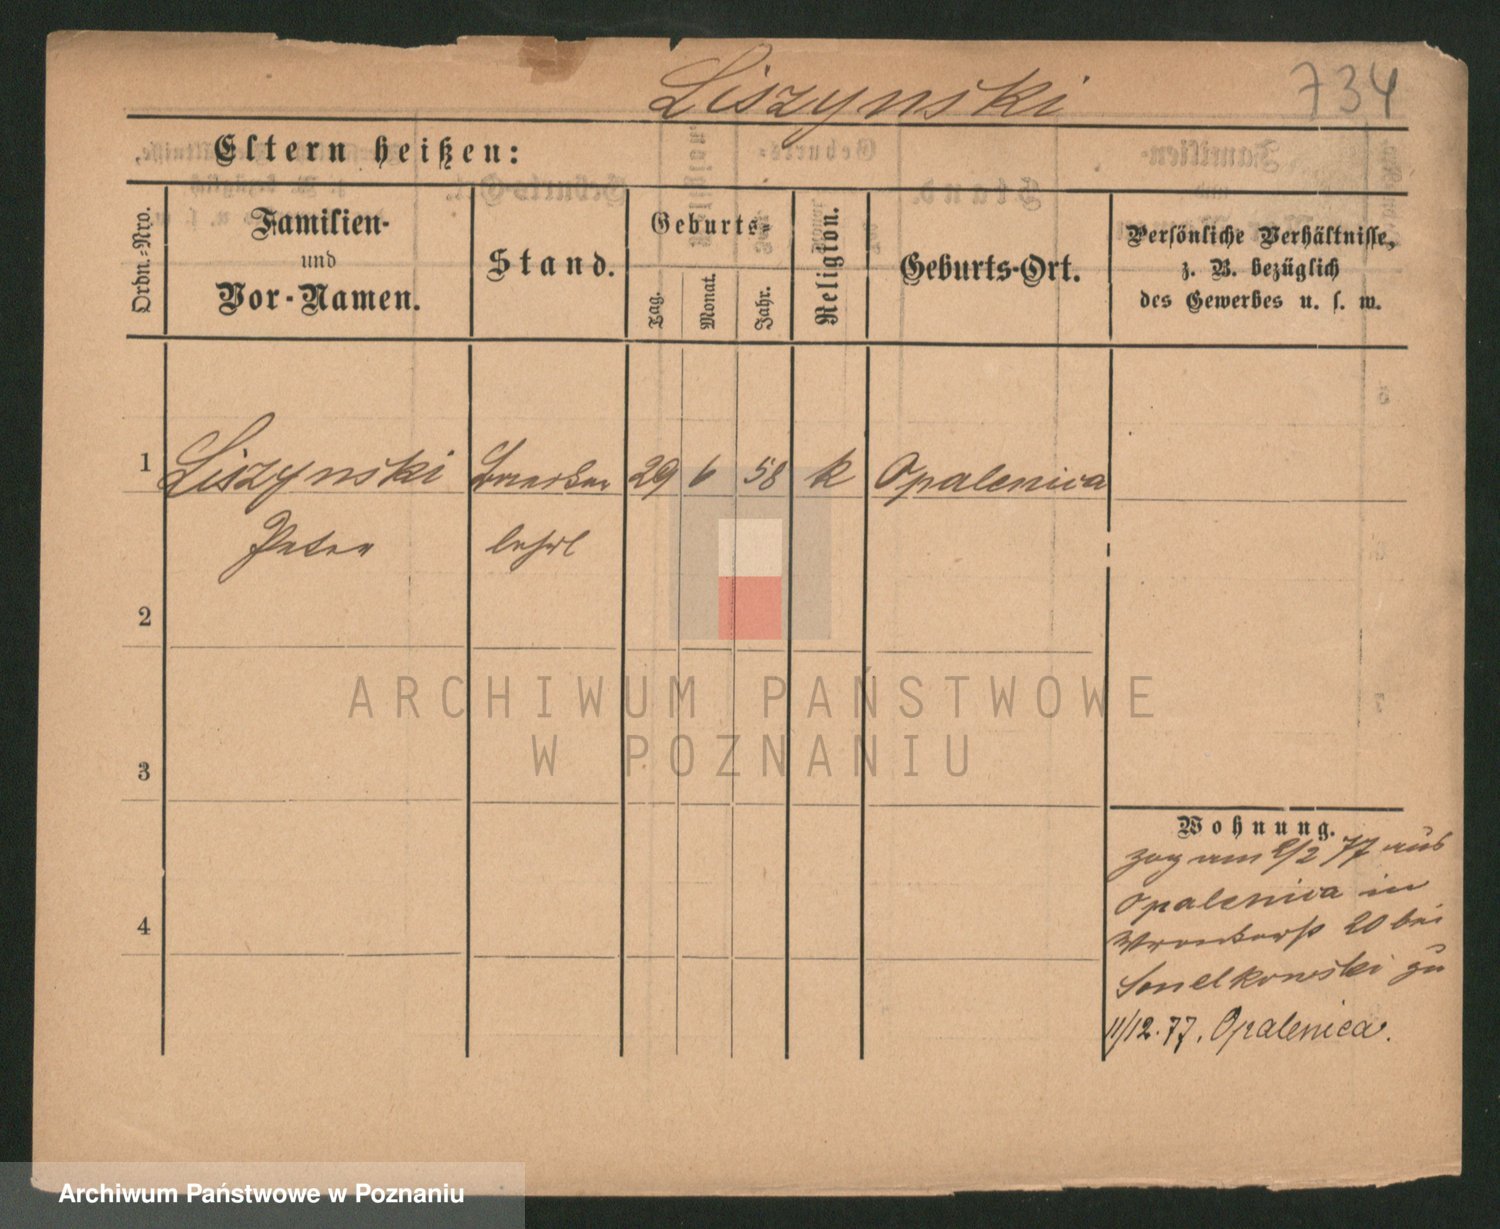 Liszynski 734
Eltern heißen:
Ordn.-Nro.
Familien-
und
Vor-Namen.
Stand.
Geburts-
Tag.
Monat.
Jahr.
Religion.
Geburts-Ort.
Persönliche Verhältnisse,
z. B. bezüglich
des Gewerbes u. s. w.
1 Liszynski 29 6 58 k Opalenica
Peter lehrl
2
3
4
Wohnung.
zog am 2/2 77 aus
Opalenica in
20 bei
zu
11/12.77. Opalenica.
ARCHIWUM PAŃSTWOWE
W POZNANIU
Archiwum Państwowe w Poznaniu